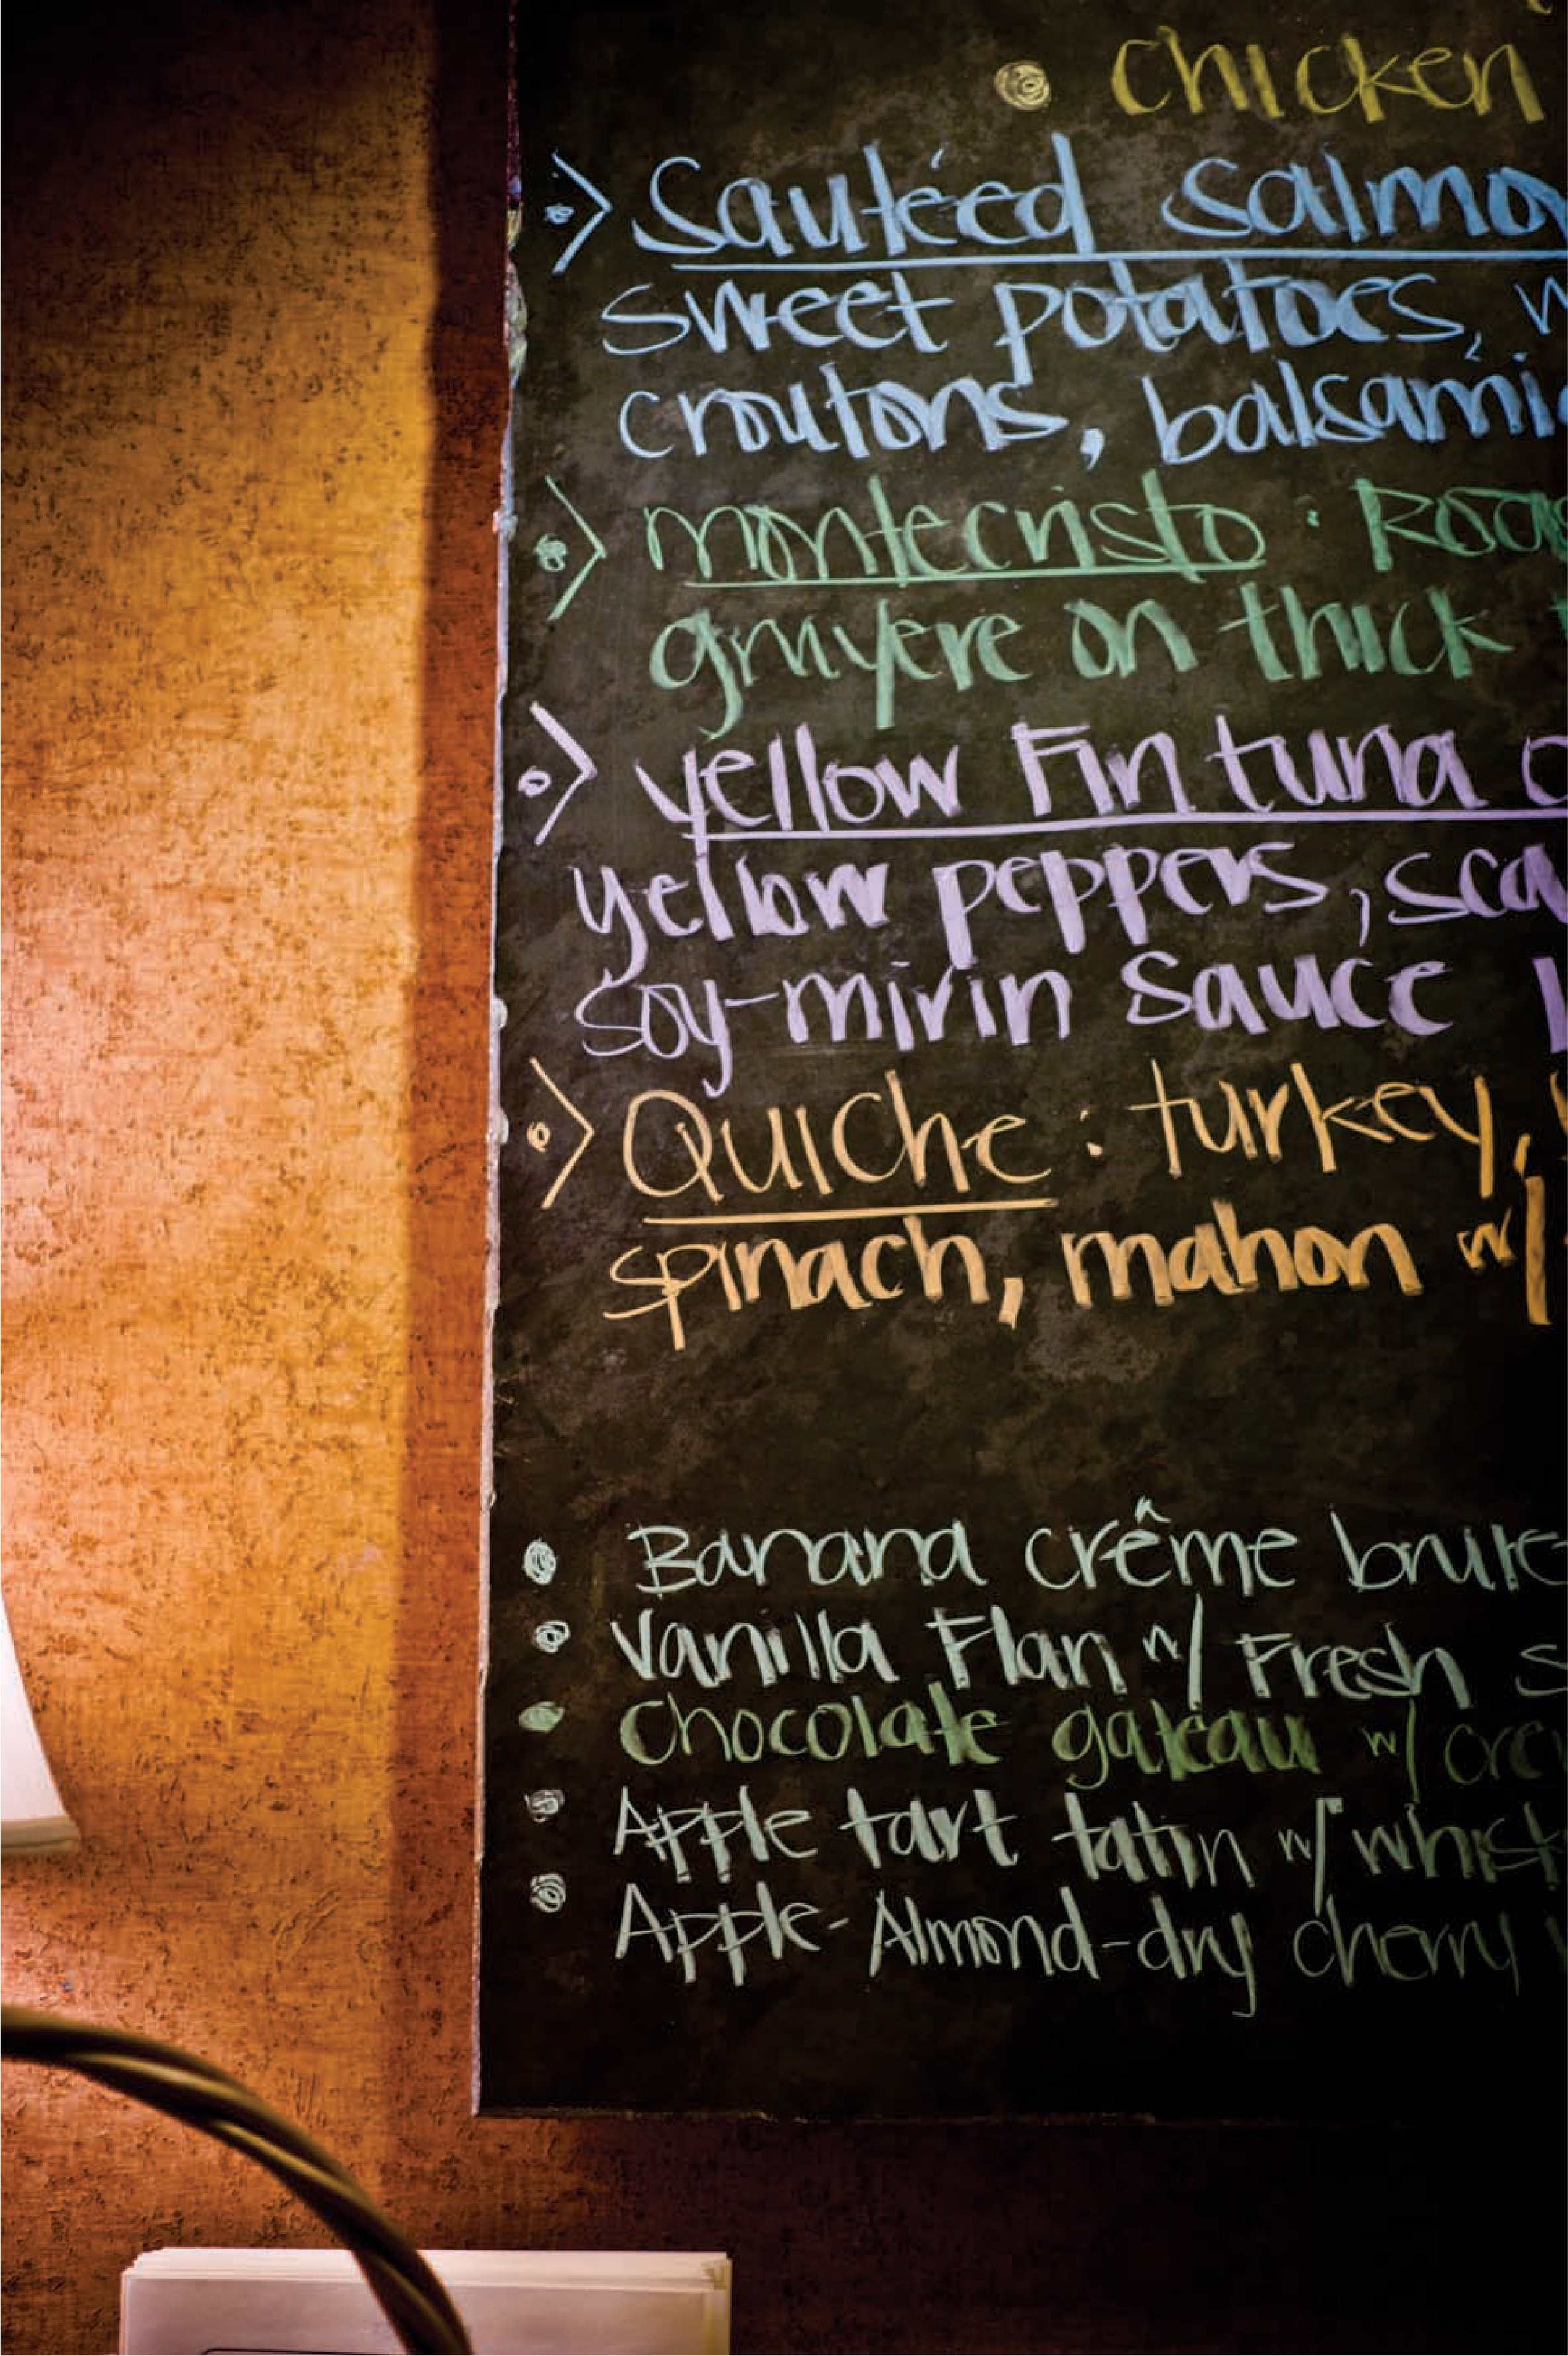 chicken
Sautéed salmo
sweet potatoes, w
croutons, balsami
montecristo: Roas
gruyere on thick
yellow Fin tuna
yellow peppers, sca
soy-mirin sauce
Quiche: turkey,
spinach, mahon w/
Banana crême brule
Vanilla Flan w/ Fresh s
Chocolate gateau w/
Apple tart tatin w/ whisk
Apple-Almond-dry cherry